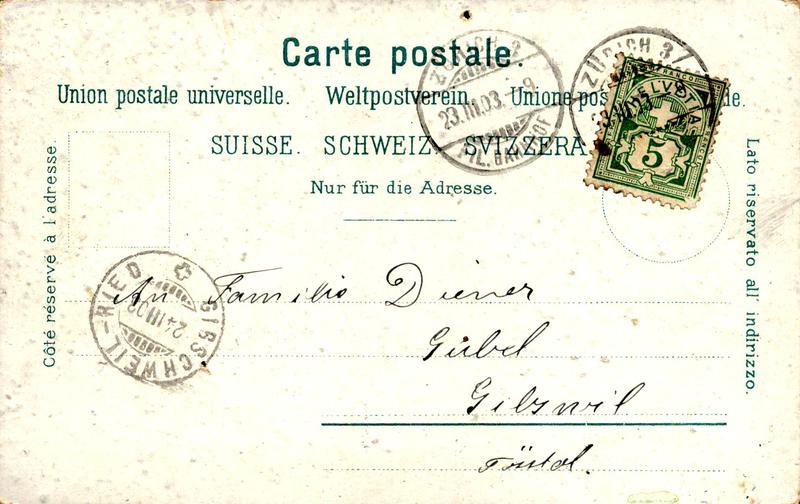 Carte postale.
Union postale universelle. Weltpostverein. Unione pos
SUISSE. SCHWEIZ. SVIZZERA
Nur für die Adresse.
Côté réservé à l'adresse.
Lato riservato all' indirizzo.
ZÜRICH 3
23.III.03.
FIL. BAHNHOF
ZÜRICH 3
FRANCO
HELVETIA
5
GIBSCHWEIL-RIED
24 III 03
An Familie Diener
Gubel
Gibswil
Tösstal.